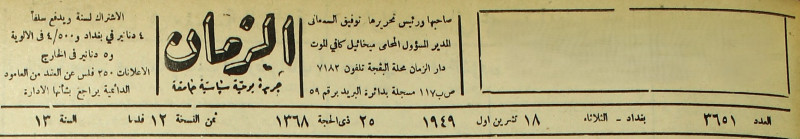 صاحبها ورئيس تحريرها توفيق السمعاني
المدير المسؤول المحامي ميخائيل كافي الموت
دار الزمان محلة البقجة تلفون ٧١٨٣
ص ب ١١٧ مسجلة بدائرة البريد برقم ٥٩
الزمان
جريدة يومية سياسية جامعة
الاشتراك لسنة ويدفع سلفاً
٤ دنانير في بغداد و ٤/٥٠٠ في الالوية
و ٥ دنانير في الخارج
الاعلانات ٢٥٠ فلس عن العقد من العامود
الدائمية يراجع بشأنها الادارة
العدد ٣٦٥١ بغداد - الثلاثاء ١٨ تشرين اول ١٩٤٩ ٢٥ ذى الحجة ١٣٦٨ ثمن النسخة ١٢ فلسا السنة ١٣